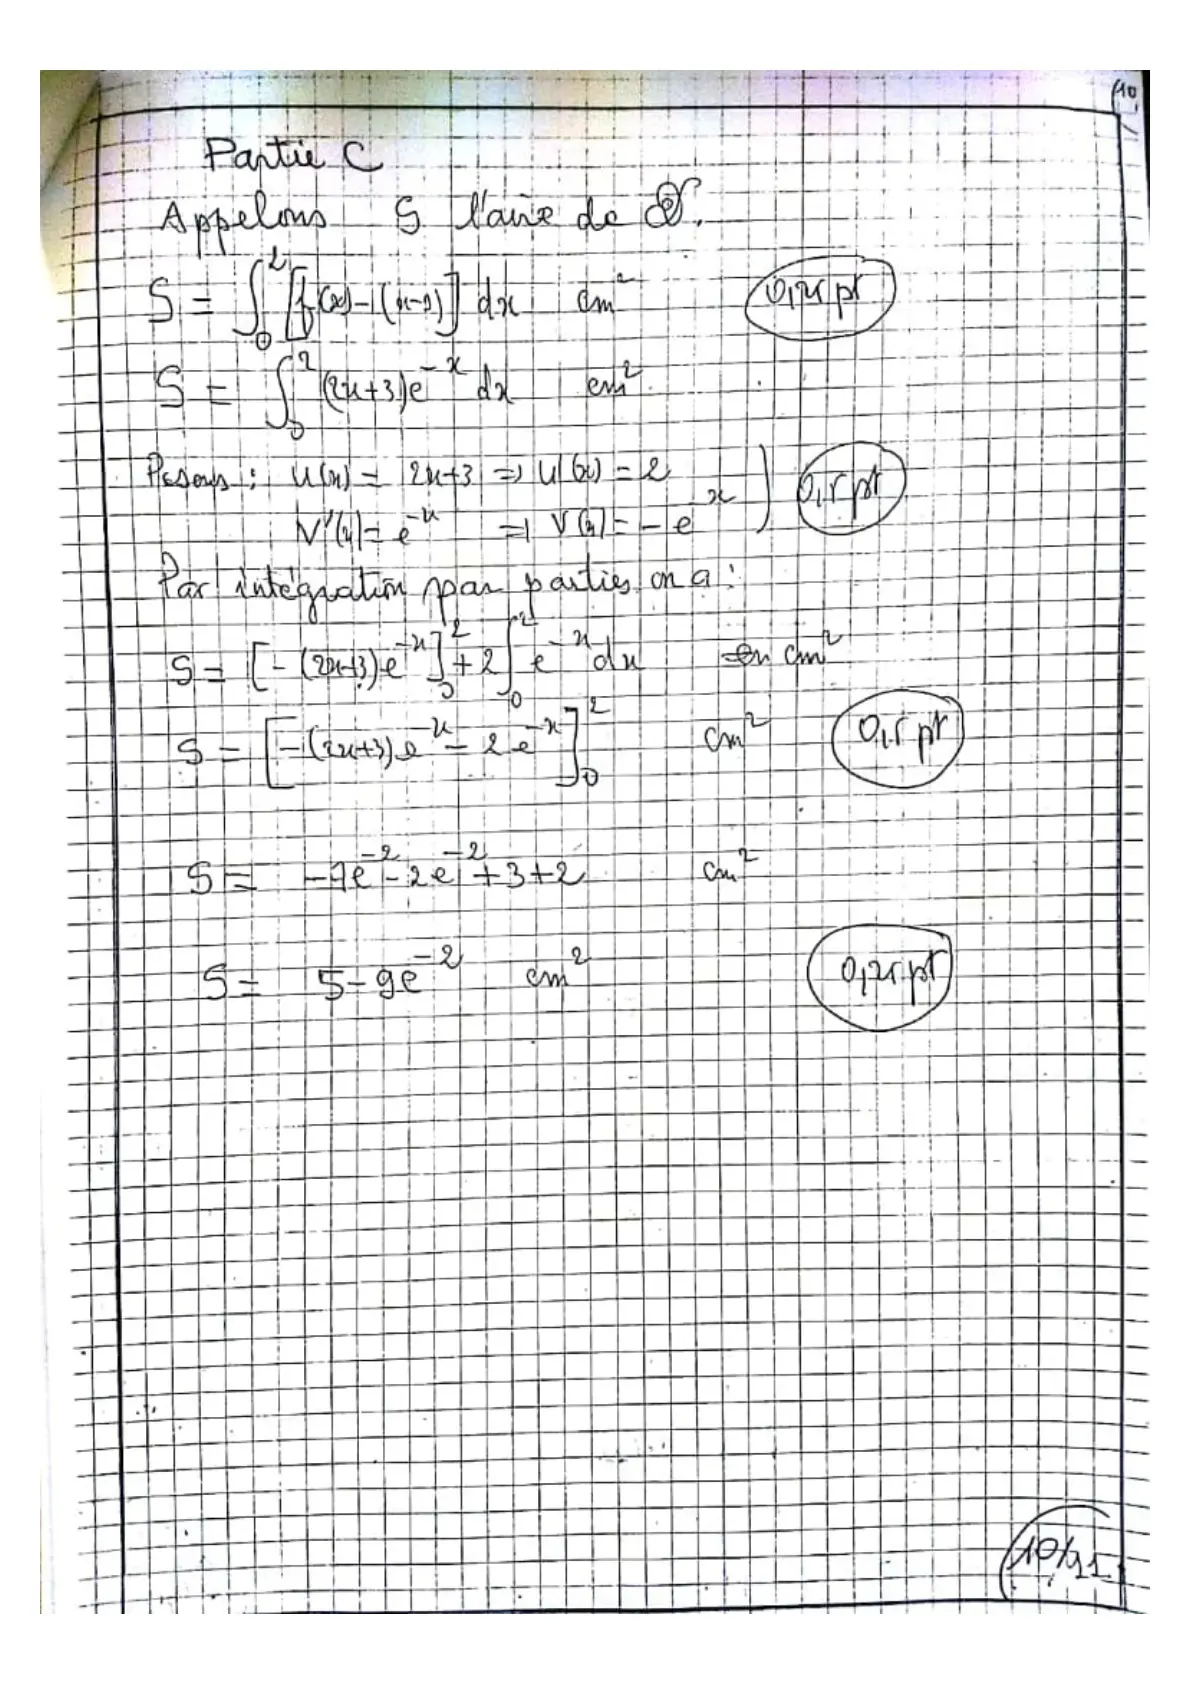 10
Partie C
Appelons S l'aire de D.
S = ∫₀² [f(x)-(x-2)] dx cm² 0,25 pt
S = ∫₀² (2x+3)e^{-x} dx cm²
Posons : u(x) = 2x+3 => u'(x) = 2 0,5 pt
v'(x) = e^{-x} => v(x) = - e^{-x}
Par intégration par parties on a :
S = [-(2x+3)e^{-x}]₀² + 2∫₀² e^{-x} dx en cm²
S = [-(2x+3)e^{-x} - 2e^{-x}]₀² cm² 0,5 pt
S = -7e^{-2} - 2e^{-2} + 3 + 2 cm²
S = 5 - 9e^{-2} cm² 0,25 pt
10/11